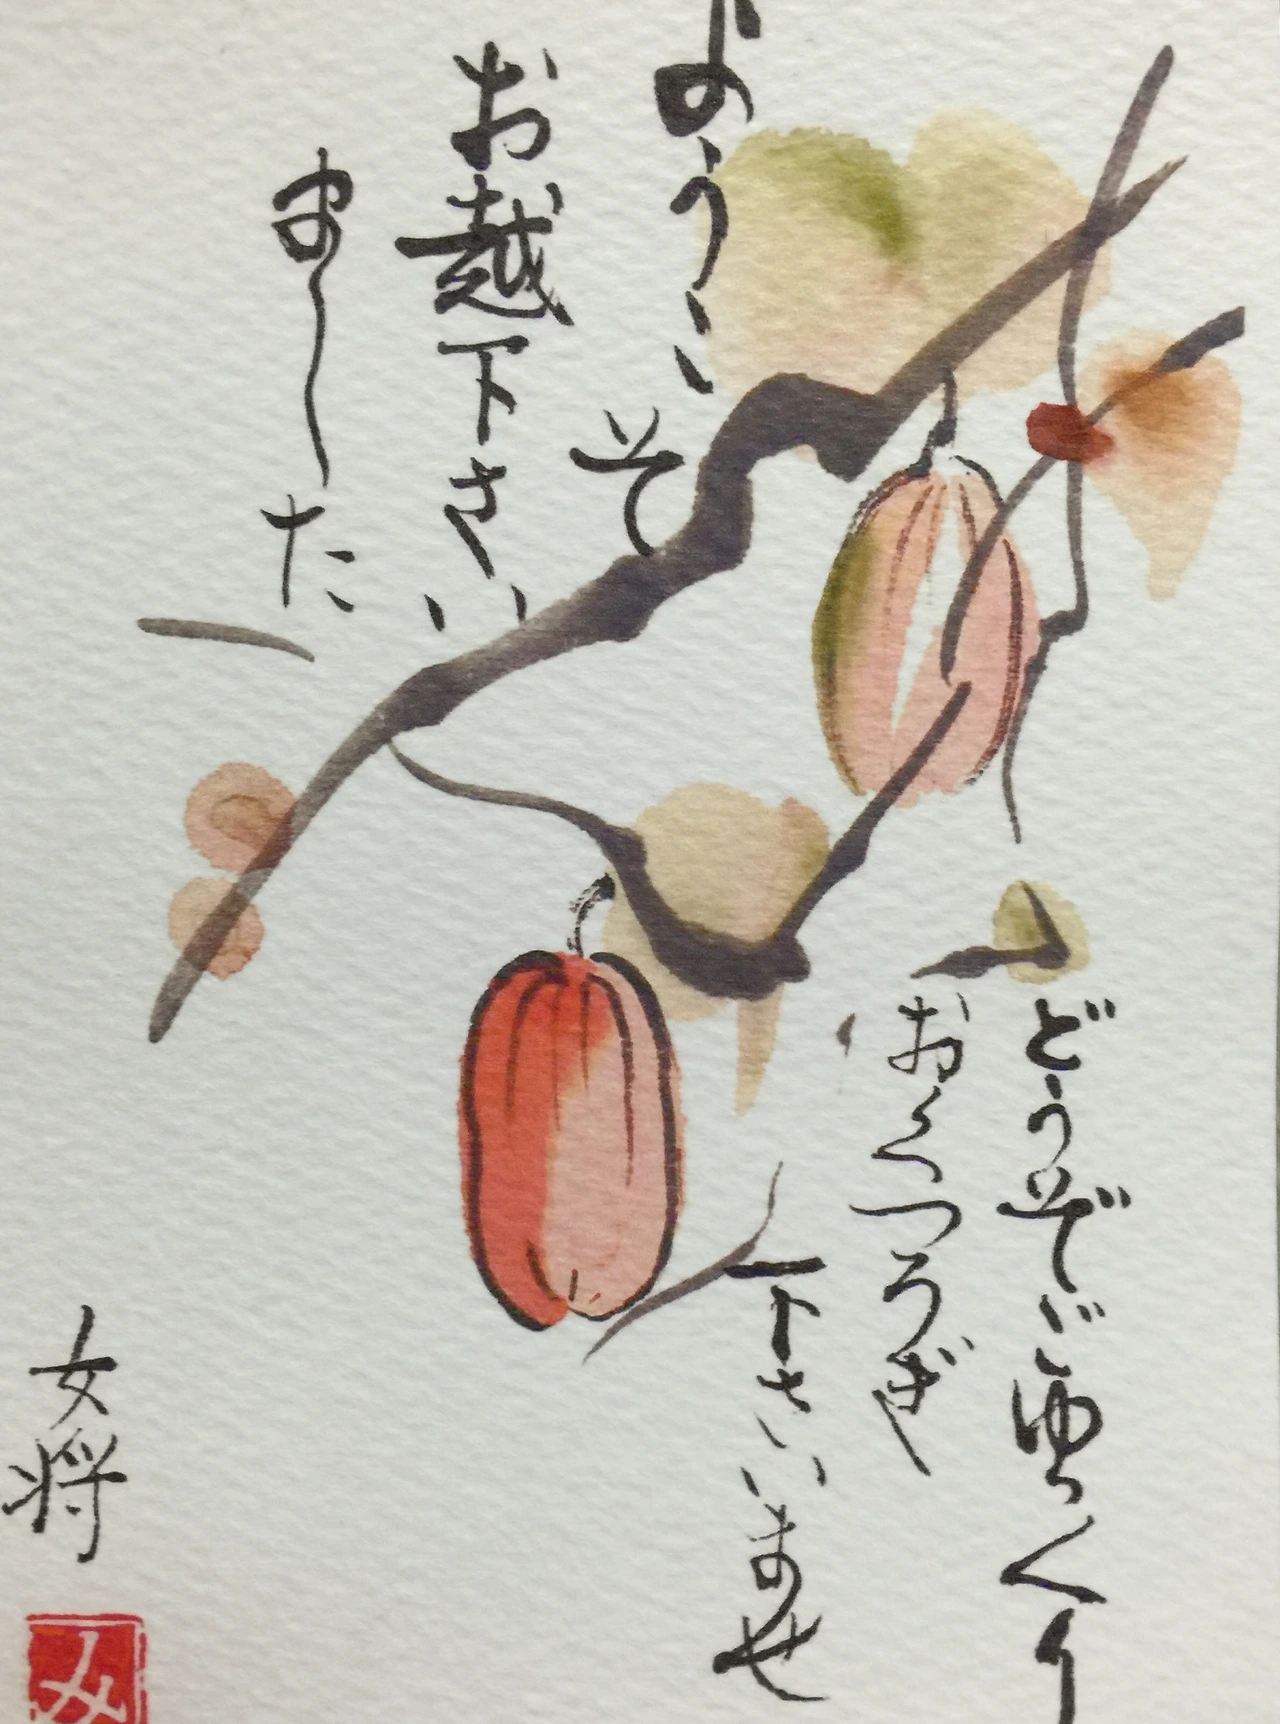 ようこそ
お越下さい
ました
どうぞごゆっくり
おくつろぎ
下さいませ
女将
み